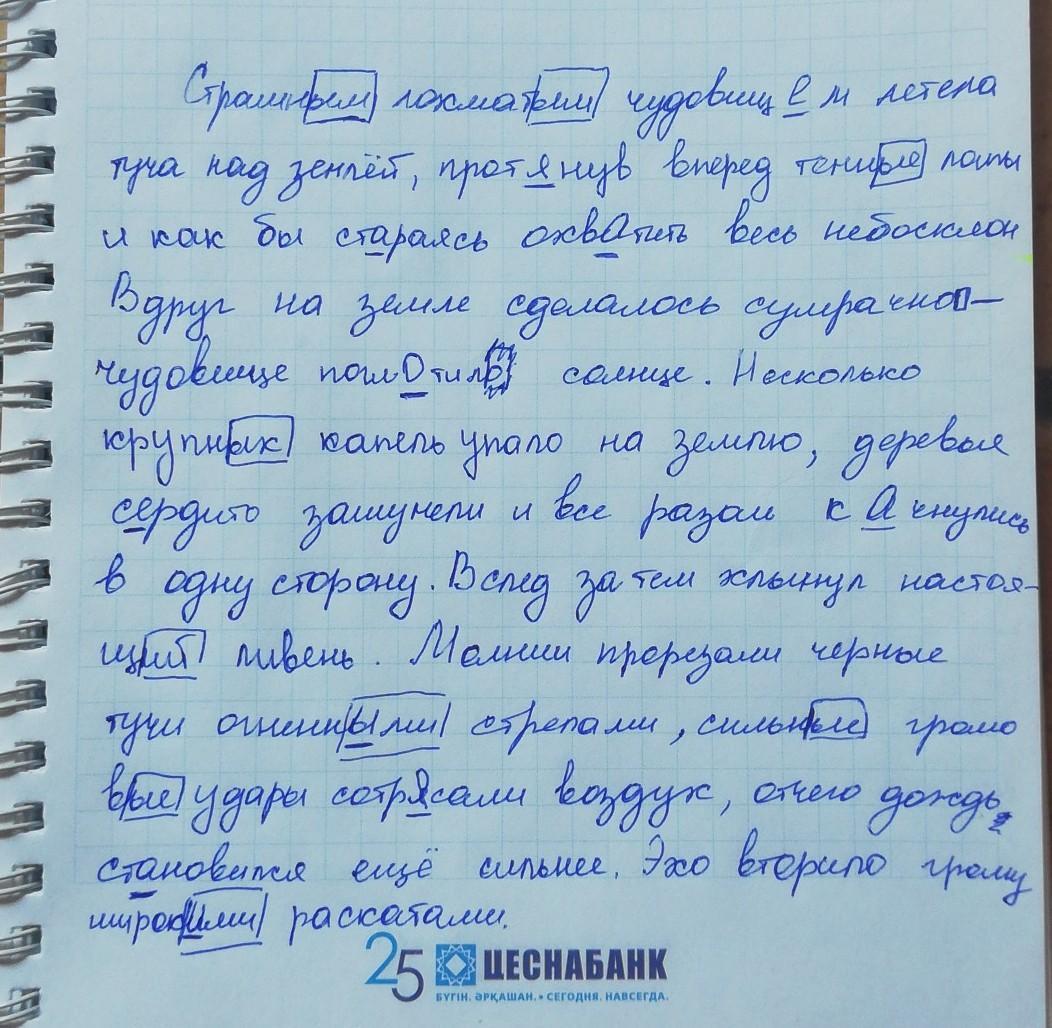 Страшным лохматым чудовищем летела
туча над землёй, протянув вперед темные лапы
и как бы стараясь охватить весь небосклон
Вдруг на земле сделалось сумрачно –
чудовище поглотило солнце. Несколько
крупных капель упало на землю, деревья
сердито зашумели и все разом качнулись
в одну сторону. Вслед за тем хлынул настоя-
щий ливень. Молнии прорезали черные
тучи огненными стрелами, сильные громо
вые удары сотрясали воздух, отчего дождь
становился ещё сильнее. Эхо вторило грому
широкими раскатами.
25 ЦЕСНАБАНК
БҮГІН. ӘРҚАШАН. • СЕГОДНЯ. НАВСЕГДА.